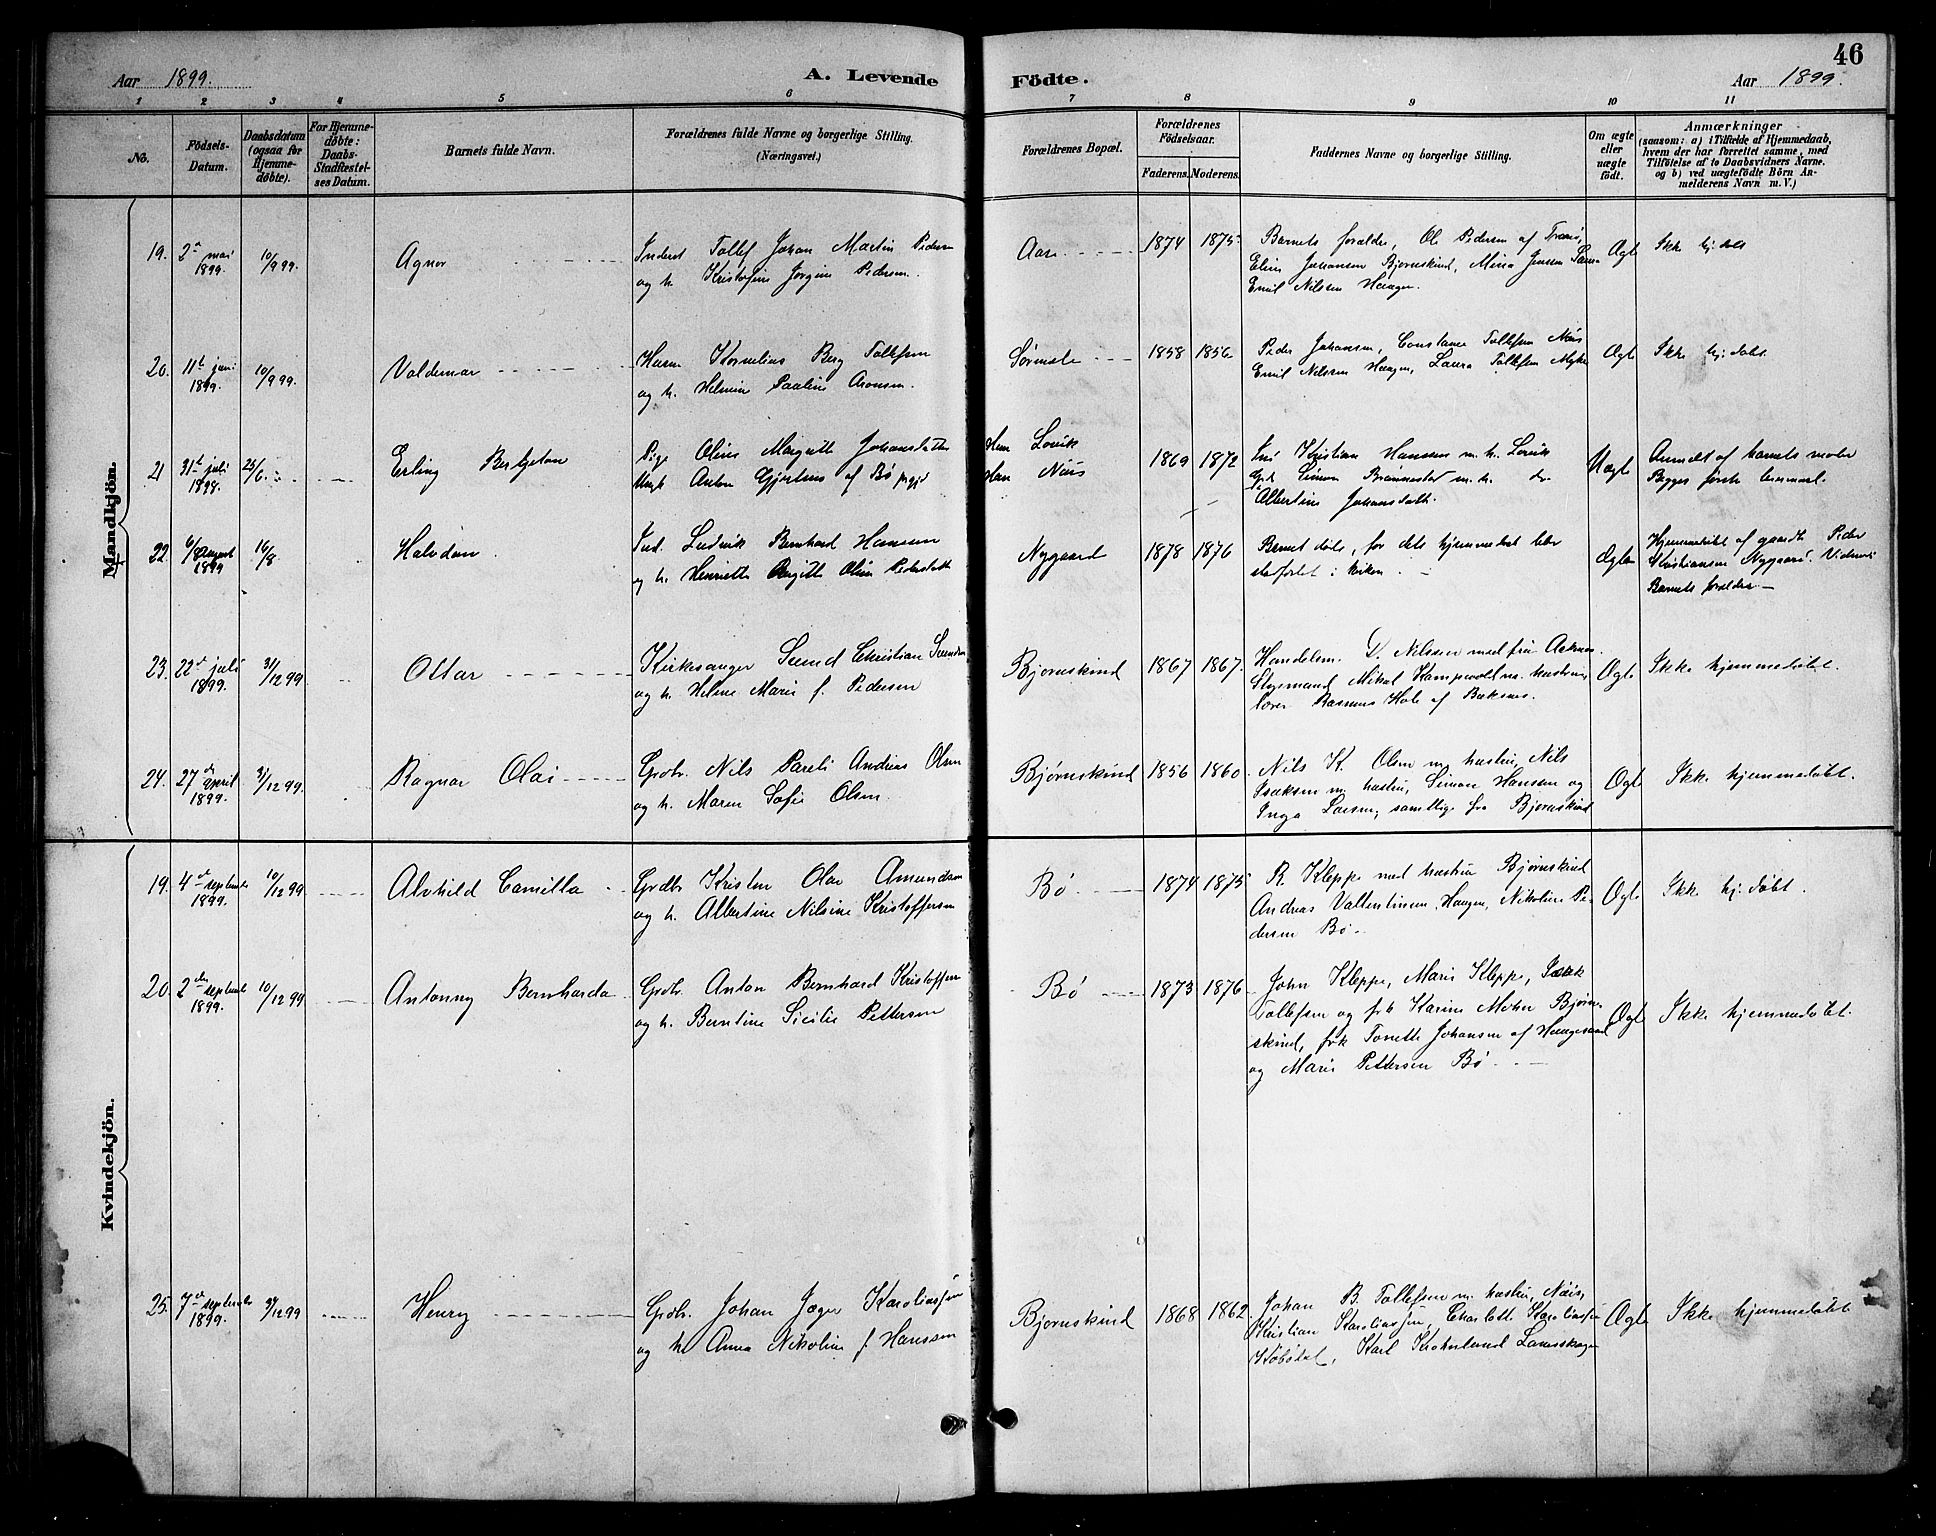 46
Aar 1899.
A. Levende Födte.
Aar 1899.
1 2 3 4 5 6 7 8 9 10 11
No.
Födsels-
Datum.
Daabsdatum
(ogsaa for
Hjemme-
döbte).
For Hjemme-
döbte:
Daabs-
Stadfæstel-
ses Datum.
Barnets fulde Navn.
Forældrenes fulde Navne og borgerlige Stilling.
(Næringsvei.)
Forældrenes Bopæl.
Forældrenes
Födselsaar.
Faderens. Moderens.
Faddernes Navne og borgerlige Stilling.
Om ægte
eller
uægte
födt.
Anmærkninger
(saasom: a) i Tilfælde af Hjemmedaab,
hvem der har forrettet samme, med
Tilföielse af to Daabsvidners Navne.
og b) ved uægtefödte Börn An-
melderens Navn m. V.)
Mandkjön.
19.
2 mai
1899.
10/9 99.
Agnar
Inderst Tollef Johan Martin Pedersen
og h. Kristofine Jorgine Pedersen
Aase
1874
1875
Barnets forældre, Ole Pedersen af
Johansen Bjørneskind, Jensen
Emil Nilsen Haugen.
Ægte
Ikke hj. døbt
20.
11te juni
1899.
10/9 99.
Valdemar
Kornelius Berg Tollefsen
og h. Helmine Pauline Aronsen.
1858
1856
Peder Johansen, Constance Tollefsen Næss
Emil Nilssen Haugen, Laura Tollefsen
Ægte
Ikke hj. døbt.
21
31te juli
1898.
25/6
Erling
Pige Oline Margrethe Johansdatter
Ungk Anton Gjertsen af Bø
Hun Lovik
Han Næss
1869
1872
Kristian Hanssen m. h. Lovik
Simon m. h. do
Albertine Johansdatt.
Uægte
Anmeldt af barnets moder
Begges første leiermaal.
22.
6/8 August
1899
16/8
Halvdan.
Ind. Ludvik Bernhard Hansen
og h. Henriette Birgitte Oline Pedersdatt
Nygaard
1878
1876
Barnet døde, før dets hjemmedaab blev
stadfæstet i kirken.
Ægte
Hjemmedøbt af gaardb. Peder
Kristiansen Nygaard. Vidner:
Barnets forældre. —
23.
22de juli
1899.
31/12 99
Ottar
Kirkesanger Sund Christian
og h. Helene Marie f. Pedersen
Bjorneskind
1867
1867.
Handelsm. D. Nilssen med fru
Styrmand Mikal Kampevold m. hustru,
lærer Rasmus Hole af Bøknes.
Ægte
Ikke hjemmedøbt.
24.
27de April
1899.
31/12 99.
Ragnar Olai
Grdbr. Nils Pareli Andreas Olsen
og h. Maren Sofie Olsen.
Bjørneskind
1856
1860.
Nils K. Olsen m. hustru, Nils
Isaksen m. hustru, Simon Hansen og
Inga Larsen, samtlige fra Bjørneskind
Ægte
Ikke hjemmedøbt.
Kvindekjön.
19.
4de septembr
1899.
10/12 99
Alvhild Camilla
Grdbr Kristen Olai Amundsen
og h. Albertine Nilsine Kristoffersen
Bø
1874
1875
R. Kleppe med hustru Bjørneskind
Andreas Vallentinsen Haugen, Nikoline Pe-
dersen Bø.
Ægte
Ikke hj. døbt.
20.
2den septembr
1899.
10/12 99
Antonny Bernharda
Grdbr. Anton Bernhard Kristoffersen
og h. Berntine Sicilie Pettersen
Bø
1873
1876
John Kleppe, Marie Kleppe, Isak
Tollefsen og frk Karine Mohn Bjørne-
skind, frk Tonette Johansen af Haugesund
og Marie Pettersen Bø
Ægte
Ikke hjemmedøbt.
25.
7de septembr
1899.
31/12 99
Henry
Grdbr. Johan Jæger Karoliussen
og h. Anna Nikoline f. Hanssen
Bjorneskind
1868
1862
Johan B. Tollefsen m. hustru, Næss,
Kristian Karoliussen, Charlotte Karoliussen
Karl
Ægte
Ikke hjemmedøbt